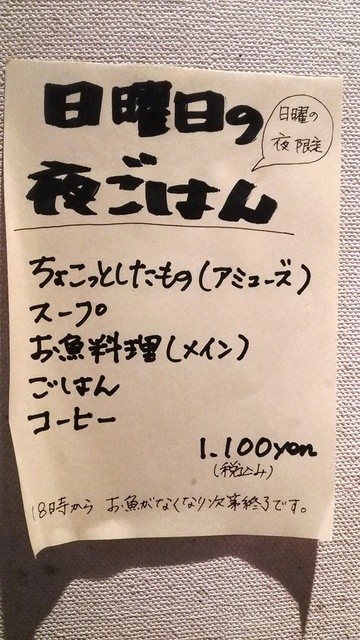 日曜日の
夜ごはん
日曜の
夜 限定
ちょこっとしたもの(アミューズ)
スープ
お魚料理(メイン)
ごはん
コーヒー
1.100yen
(税込み)
18時から お魚がなくなり次第終了です。